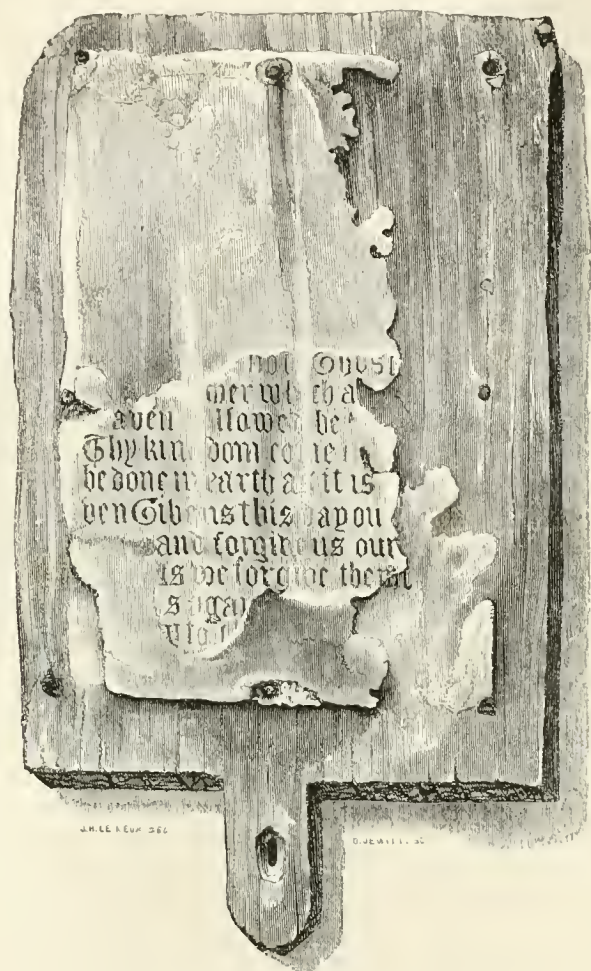 not Ghost
ther which a
aven llowed be
Thy kin dom come
be done in earth as it is
ven Give us this day ou
and forgive us our
as we forgive them
s agai
J.H. LE KEUX DEL
O. JEWITT. SC